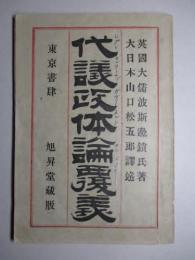 英國大儒波斯邊鎖氏著
大日本山口松五郎譯述
代議政体論覆義
東京書肆 旭昇堂藏版